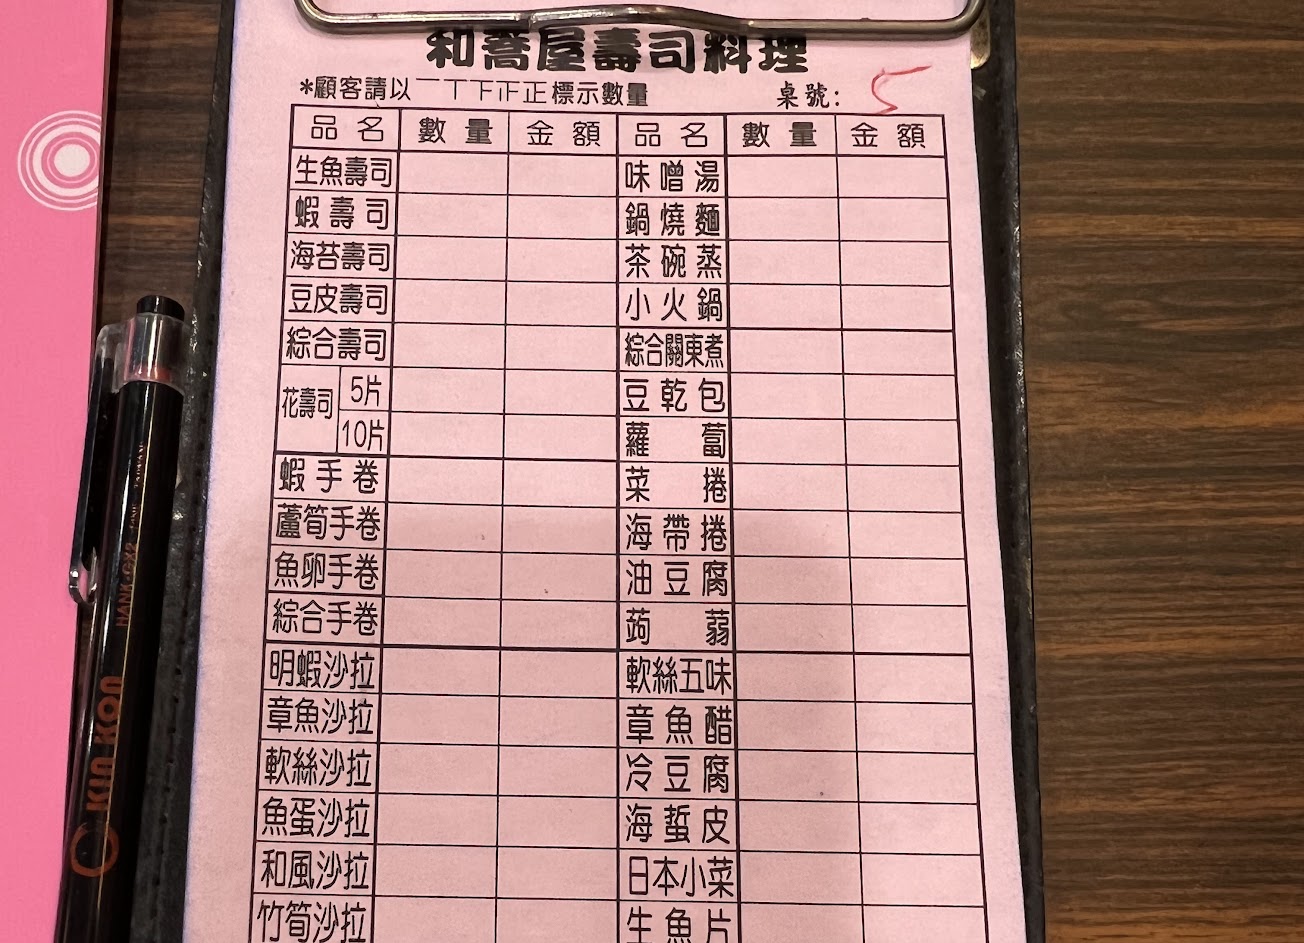 和喬屋壽司料理
*顧客請以一丅下正正標示數量 桌號: 5
品名 數量 金額 品名 數量 金額
生魚壽司 味噌湯
蝦壽司 鍋燒麵
海苔壽司 茶碗蒸
豆皮壽司 小火鍋
綜合壽司 綜合關東煮
花壽司 5片 豆乾包
10片 蘿蔔
蝦手卷 菜捲
蘆筍手卷 海帶捲
魚卵手卷 油豆腐
綜合手卷 蒟蒻
明蝦沙拉 軟絲五味
章魚沙拉 章魚醋
軟絲沙拉 冷豆腐
魚蛋沙拉 海蜇皮
和風沙拉 日本小菜
竹筍沙拉 生魚片
KIN KON
HANK-GX2